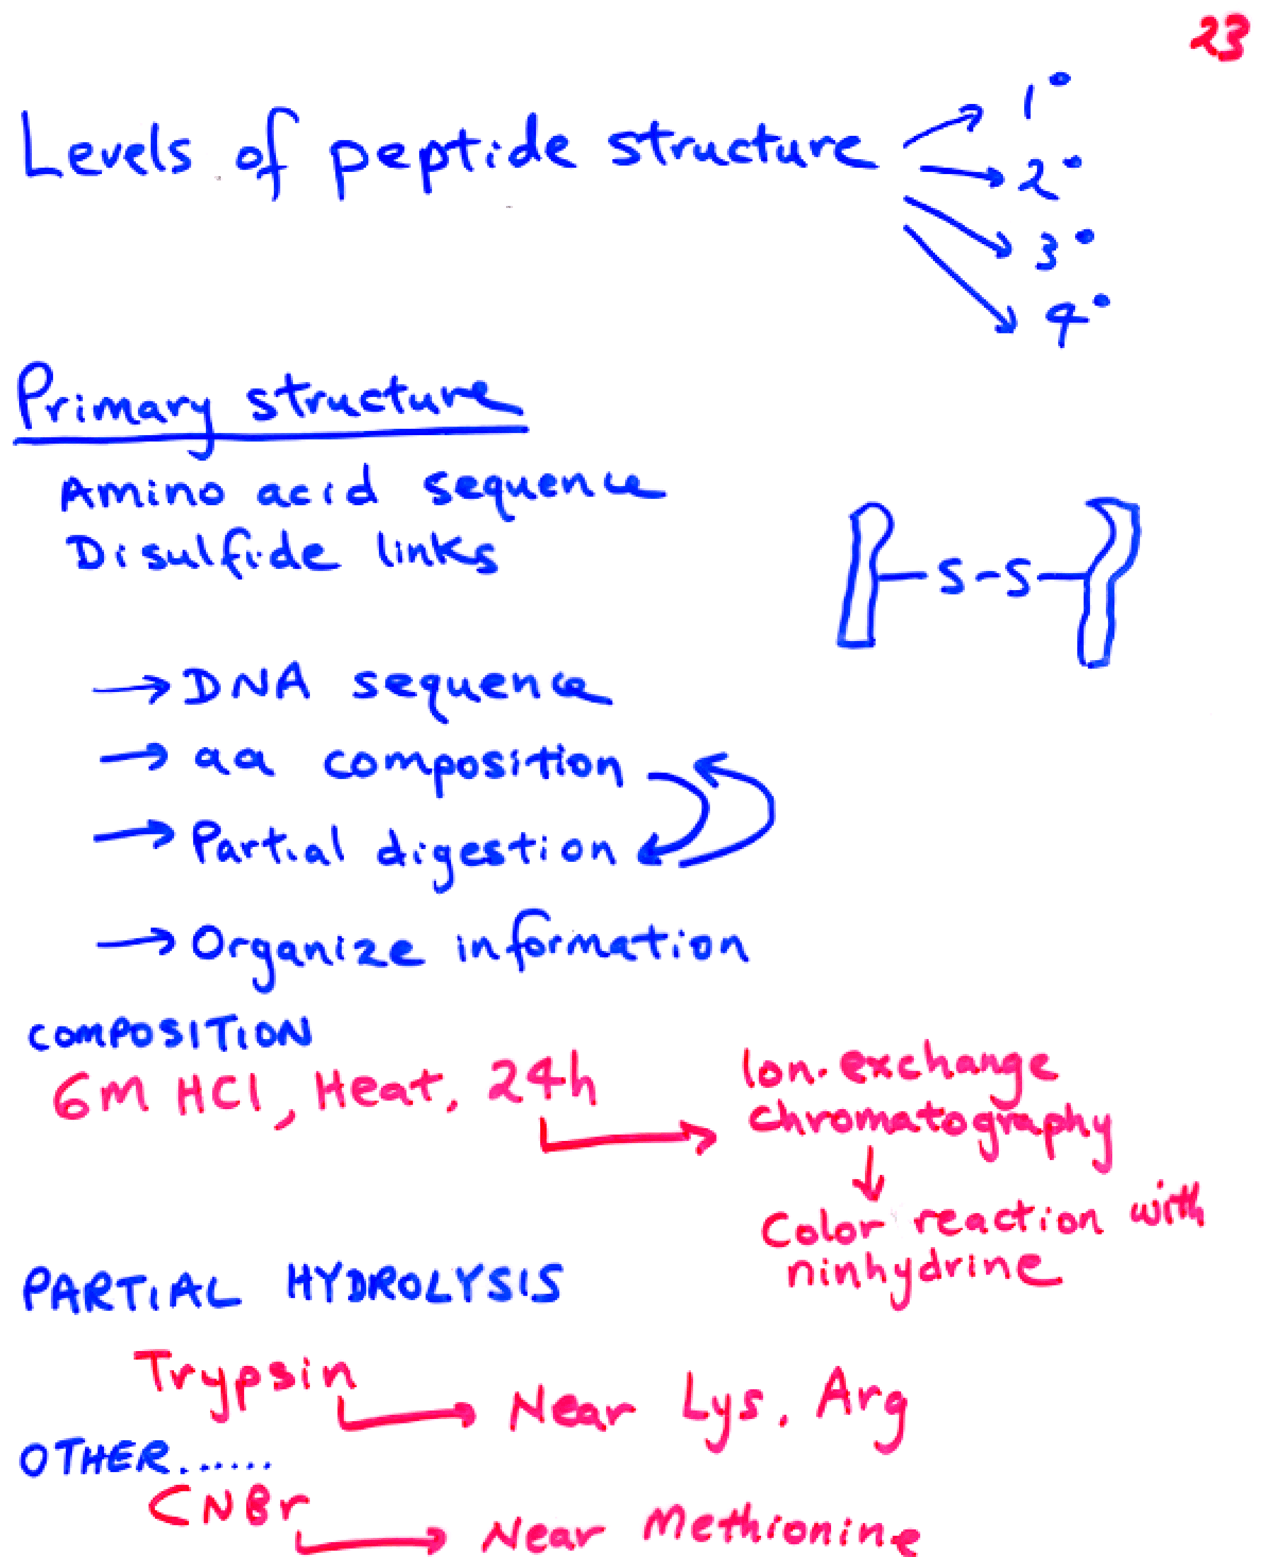 23
Levels of peptide structure → 1°
→ 2°
→ 3°
→ 4°
Primary structure
Amino acid sequence
Disulfide links
S-S
→ DNA sequence
→ aa composition
→ Partial digestion
→ Organize information
COMPOSITION
6M HCl, Heat, 24h
Ion-exchange
chromatography
Color reaction with
ninhydrine
PARTIAL HYDROLYSIS
Trypsin
Near Lys, Arg
OTHER......
CNBr
Near Methionine